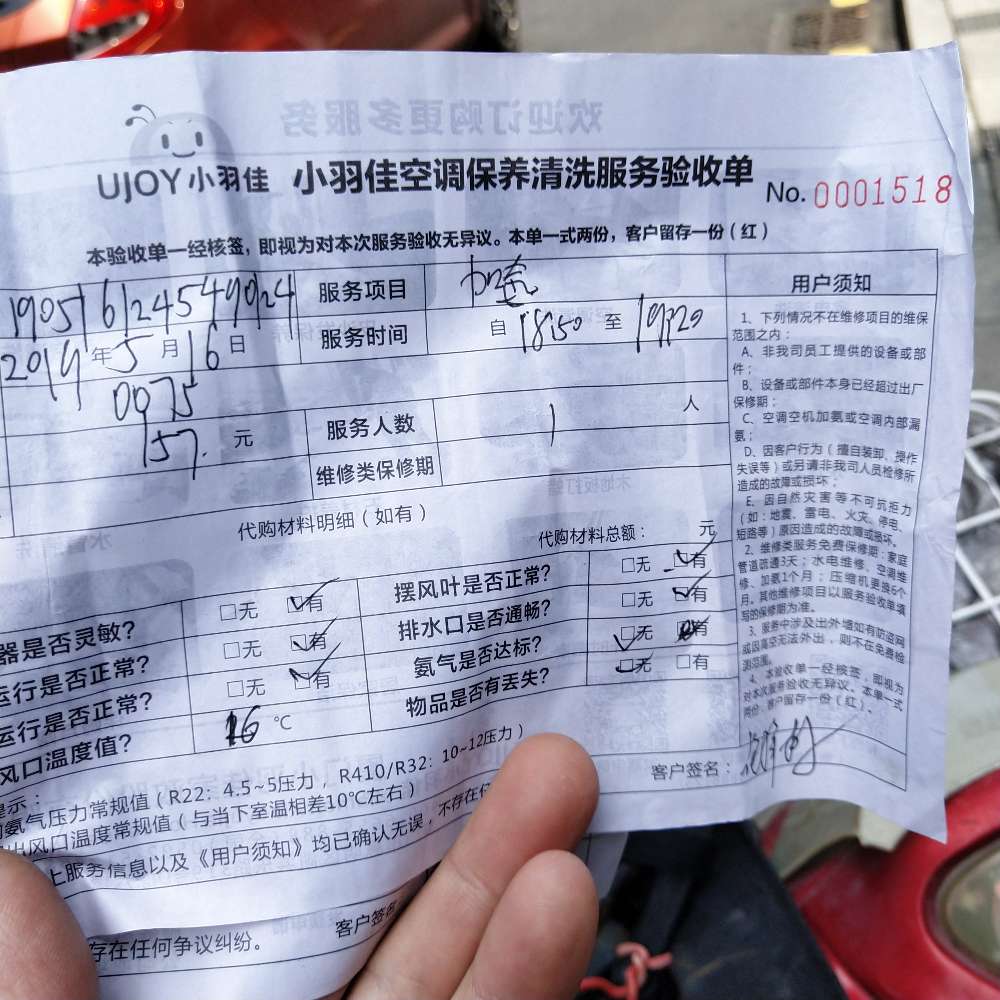 欢迎订购更多服务
UJOY 小羽佳 小羽佳空调保养清洗服务验收单 No. 0001518
本验收单一经核签，即视为对本次服务验收无异议。本单一式两份，客户留存一份（红）
190516124549024 服务项目 加氨
2019年5月16日 服务时间 自 18:50 至 19:20
0075
157. 元 服务人数 1 人
维修类保修期
代购材料明细（如有）
代购材料总额： 元
器是否灵敏？ □无 ☑有 摆风叶是否正常？ □无 ☑有
运行是否正常？ □无 ☑有 排水口是否通畅？ □无 ☑有
运行是否正常？ □无 ☑有 氨气是否达标？ ☑无 □有
风口温度值？ 16 ℃ 物品是否有丢失？ ☑无 □有
提示：
氨气压力常规值（R22：4.5~5压力，R410/R32：10~12压力）
出风口温度常规值（与当下室温相差10℃左右）
上服务信息以及《用户须知》均已确认无误，不存在任
客户签名
存在任何争议纠纷。
用户须知
1、下列情况不在维修项目的维保
范围之内：
A、非我司员工提供的设备或部
件；
B、设备或部件本身已经超过出厂
保修期；
C、空调空机加氨或空调内部漏
氨；
D、因客户行为（擅自装卸、操作
失误等）或另请非我司人员检修所
造成的故障或损坏；
E、因自然灾害等不可抗拒力
（如：地震、雷电、火灾、停电、
短路等）原因造成的故障或损坏。
2、维修类服务免费保修期：家庭
管道疏通3天；水电维修、空调维
修、加氨1个月；压缩机更换6个
月。其他维修项目以服务验收单填
写的保修期为准。
3、服务中涉及出外墙如有防盗网
或因高空无法外出，则不在免费检
测范围。
4、本验收单一经核签，即视为
对本次服务验收无异议。本单一式
两份，客户留存一份（红）。
客户签名：